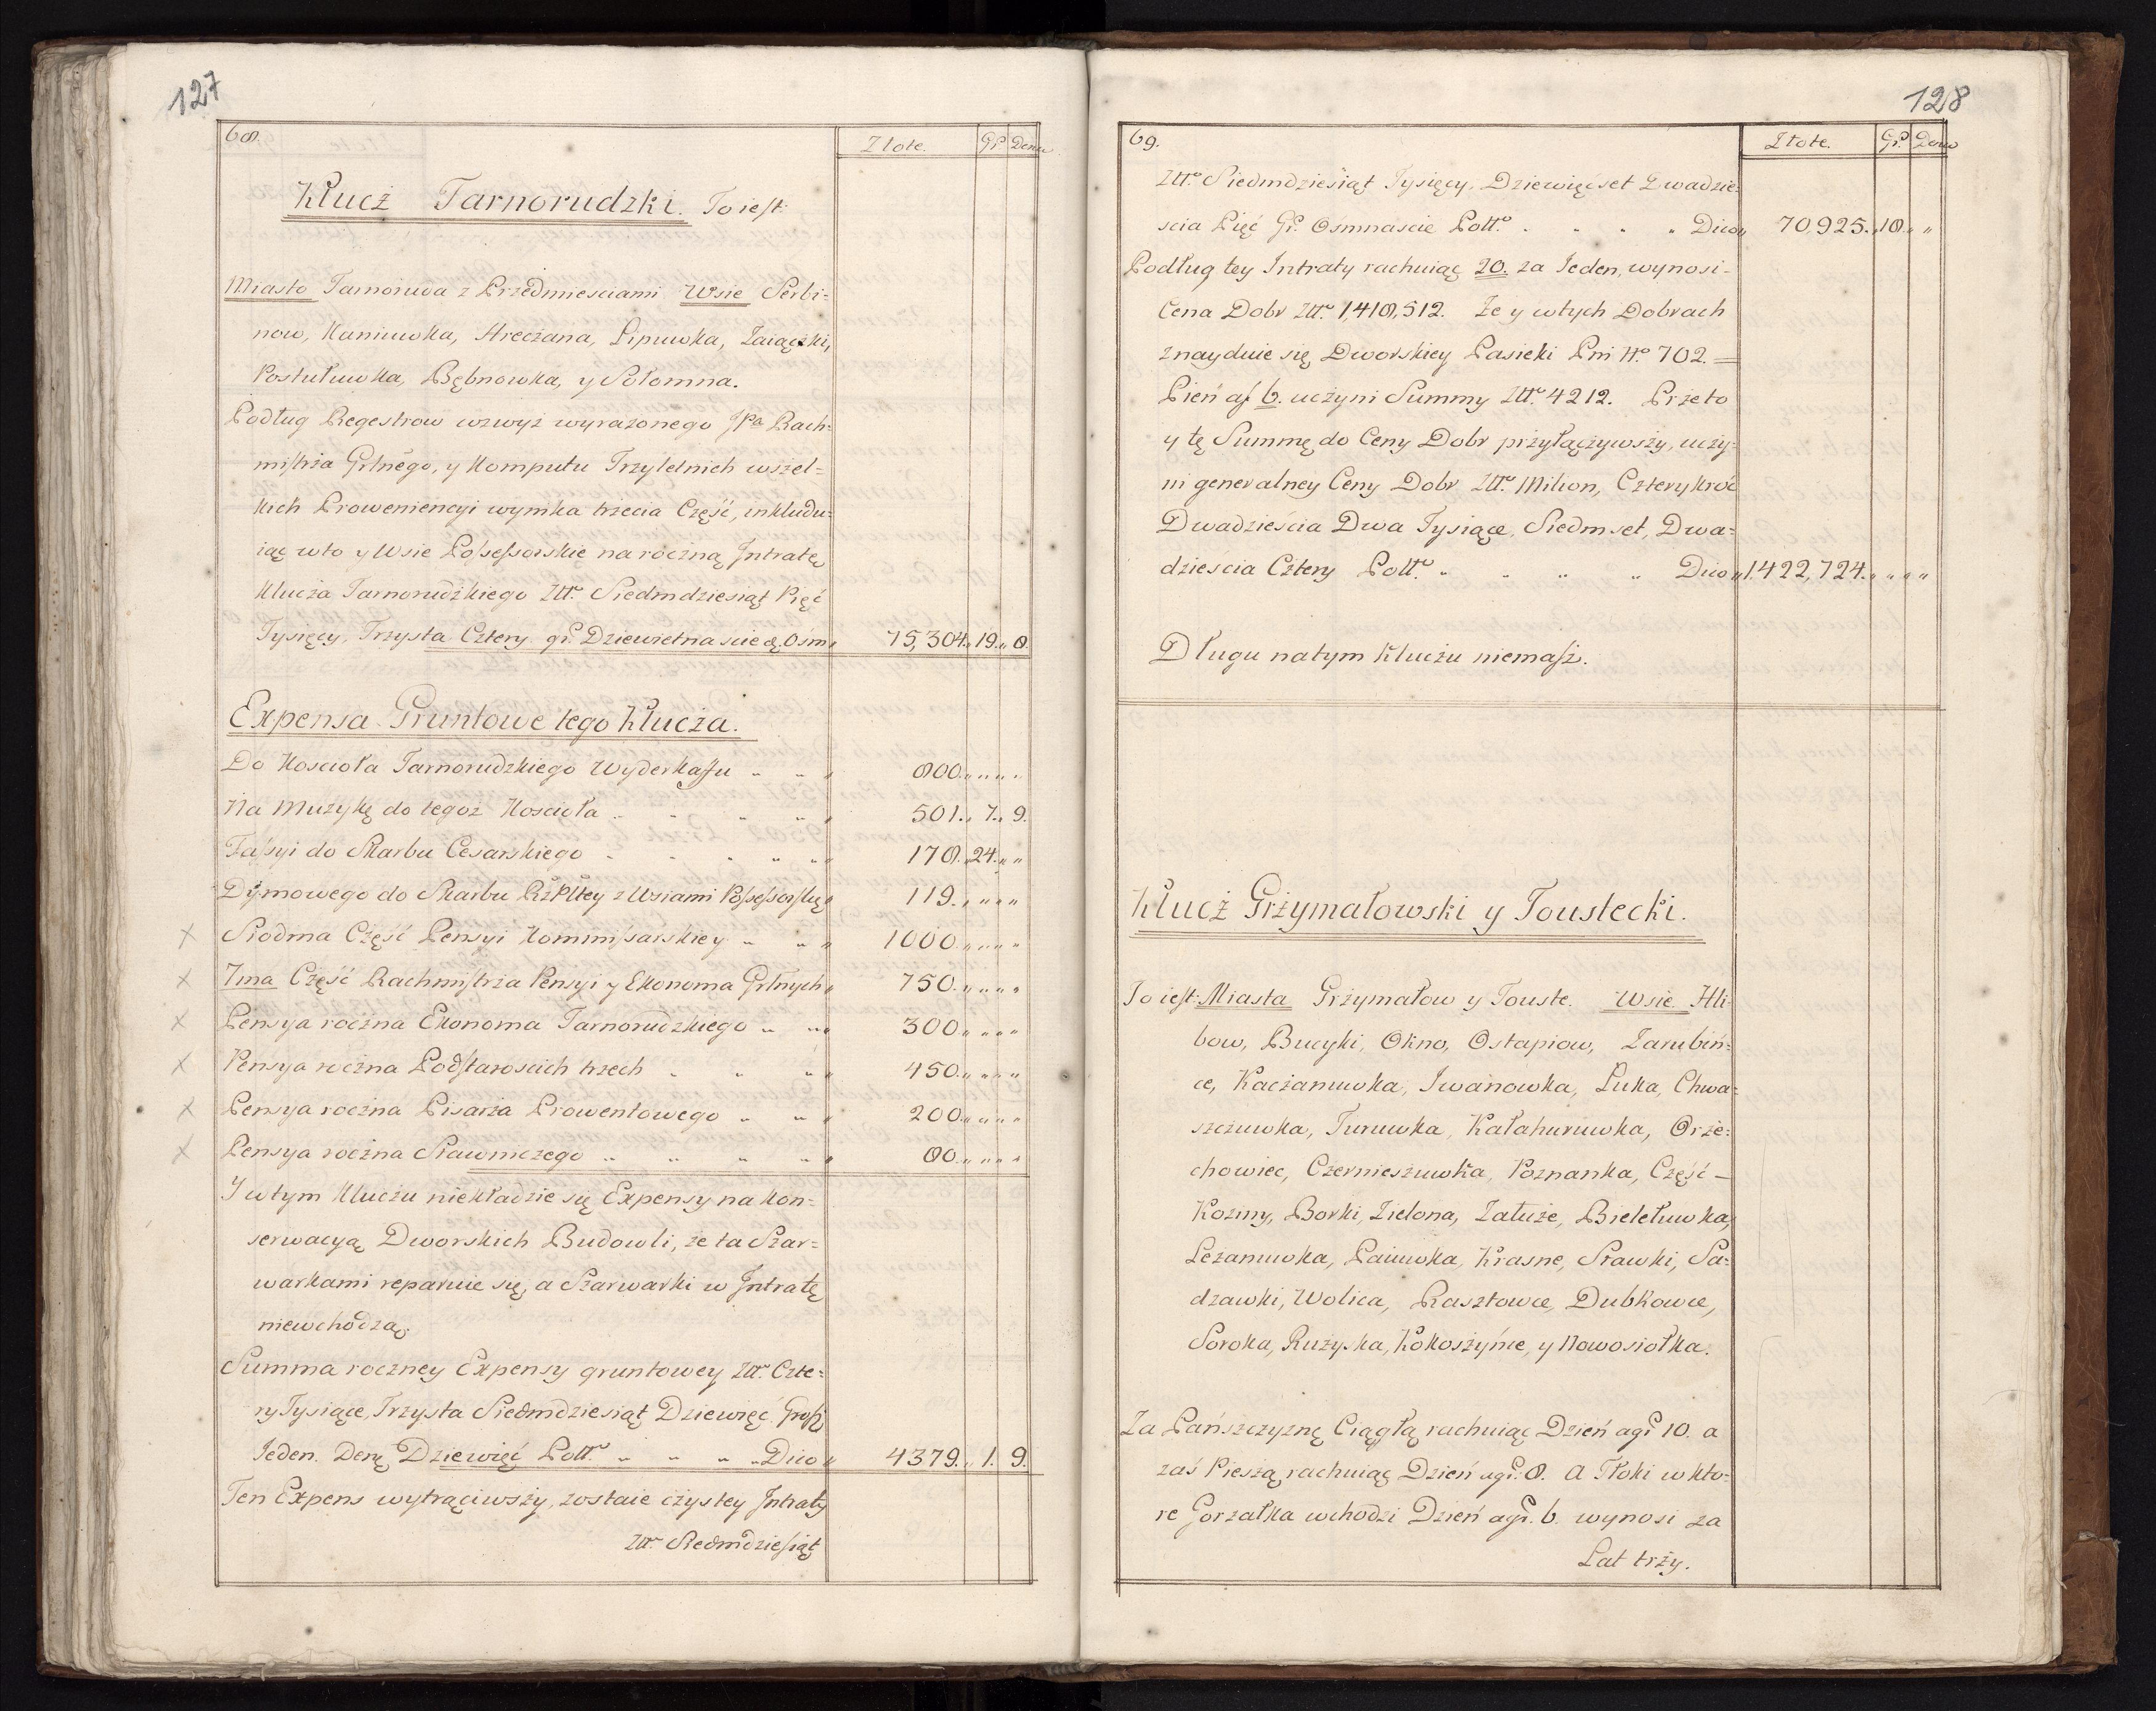 127
68. Złote. Gr. Dena
Klucż Tarnorudzki. To iest:
Miasto Tarnoruda z Przedmiesciami Wsie Serbi=
now, Kaniuwka, Hreczana, Lipuwka, Zaiączki,
Postułuwka, Bębnowka, y Sołomna.
Podług Regestrow wzwyż wyrażonego JPa Rach=
mistrza Grlnego, y Komputu Trzyletnich wszel=
kich Proweniencyi wynika trzecia Część, inkludu=
iąc wto y Wsie Possessorskie na rocżną Jntratę
Klucża Tarnorudzkiego Złł. Siedmdziesiąt Pięć
Tysięcy, Trzysta Cztery gr. Dziewietnascie d. Osm 75,304. 19. 8.
Expensa Gruntowe tego Klucża.
Do Koscioła Tarnorudzkiego Wyderkassu 800.
Na Muzykę do tegoż Koscioła 501. 7. 9.
Fassyi do Skarbu Cesarskiego 178. 24.
Dymowego do Skarbu RzPltey z Wsiami Possessorskię 119.
x Siodma Część Pensyi Kommissarskiey 1000.
x 7ma Część Rachmistrza Pensyi y Ekonoma Grlnych 750.
x Pensya rocżna Ekonoma Tarnorudzkiego 300.
x Pensya rocżna Podstaroscich trzech 450.
x Pensya rocżna Pisarża Prowentowego 200.
x Pensya rocżna Stawniczego 80.
Y wtym Klucżu niekładzie się Expensy na kon=
serwacyą Dworskich Budowli, że ta Szar=
warkami reparuie się, a Szarwarki w Jntratę
niewchodzą.
Summa roczney Expensy gruntowey Złł. Czte=
ry Tysiące, Trzysta Siedmdziesiąt Dziewięć Groszy
Jeden. Denę Dziewięć Poll. Dico 4379. 1. 9.
Ten Expens wytrąciwszy, zostaie cżystey Jntraty
Złł. Siedmdziesiąt
128
69. Złote. Gr. Dena
Złł. Siedmdziesiąt Tysięcy, Dziewięćset Dwadzie=
scia Pięć Gr. Osmnascie Poll. Dico 70,925. 18.
Podług tey Jntraty rachuiąc 20. za Jeden, wynosi-
Cena Dobr Złł. 1,418,512. Że y wtych Dobrach
znayduie się Dworskiey Pasieki Pni No. 702. =
Pień a f 6. ucżyni Summy Złł. 4212. Przeto
y tę Summę do Ceny Dobr przyłączywszy, ucży=
ni generalney Ceny Dobr Złł. Milion, Cztery kroć
Dwadzieścia Dwa Tysiące, Siedmset, Dwa=
dziescia Cztery Poll. Dico 1,422,724.
Długu natym Klucżu niemasz.
Klucż Grżymałowski y Toustecki.
To iest: Miasta Grżymałow y Touste. Wsie Hli=
bow, Bucyki, Okno, Ostapiow, Zarubiń=
ce, Kacżanuwka, Jwanowka, Łuka, Chwa=
szczuwka, Turuwka, Kałaharuwka, Orże=
chowiec, Czernieszuwka, Poznanka, Część -
Kozmy, Borki, Zielona, Załuże, Bieletuwka,
Leżanuwka, Paiuwka, Krasne, Stawki, Sa=
dzawki, Wolica, Rasztowce, Dubkowce,
Soroka, Rużyska, Kokoszyńce, y Nowosiołka.
Za Pańszczyznę Ciągłą rachuiąc Dzień agr 10. a
zaś Pieszą rachuiąc Dzień agr. 8. A Tłoki w kto=
re Gorzałka wchodzi Dzień agr. 6. wynosi za
Lat trzy.